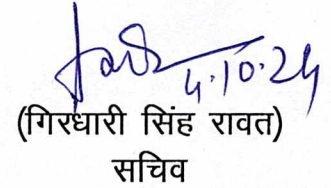 4.10.24
(गिरधारी सिंह रावत)
सचिव